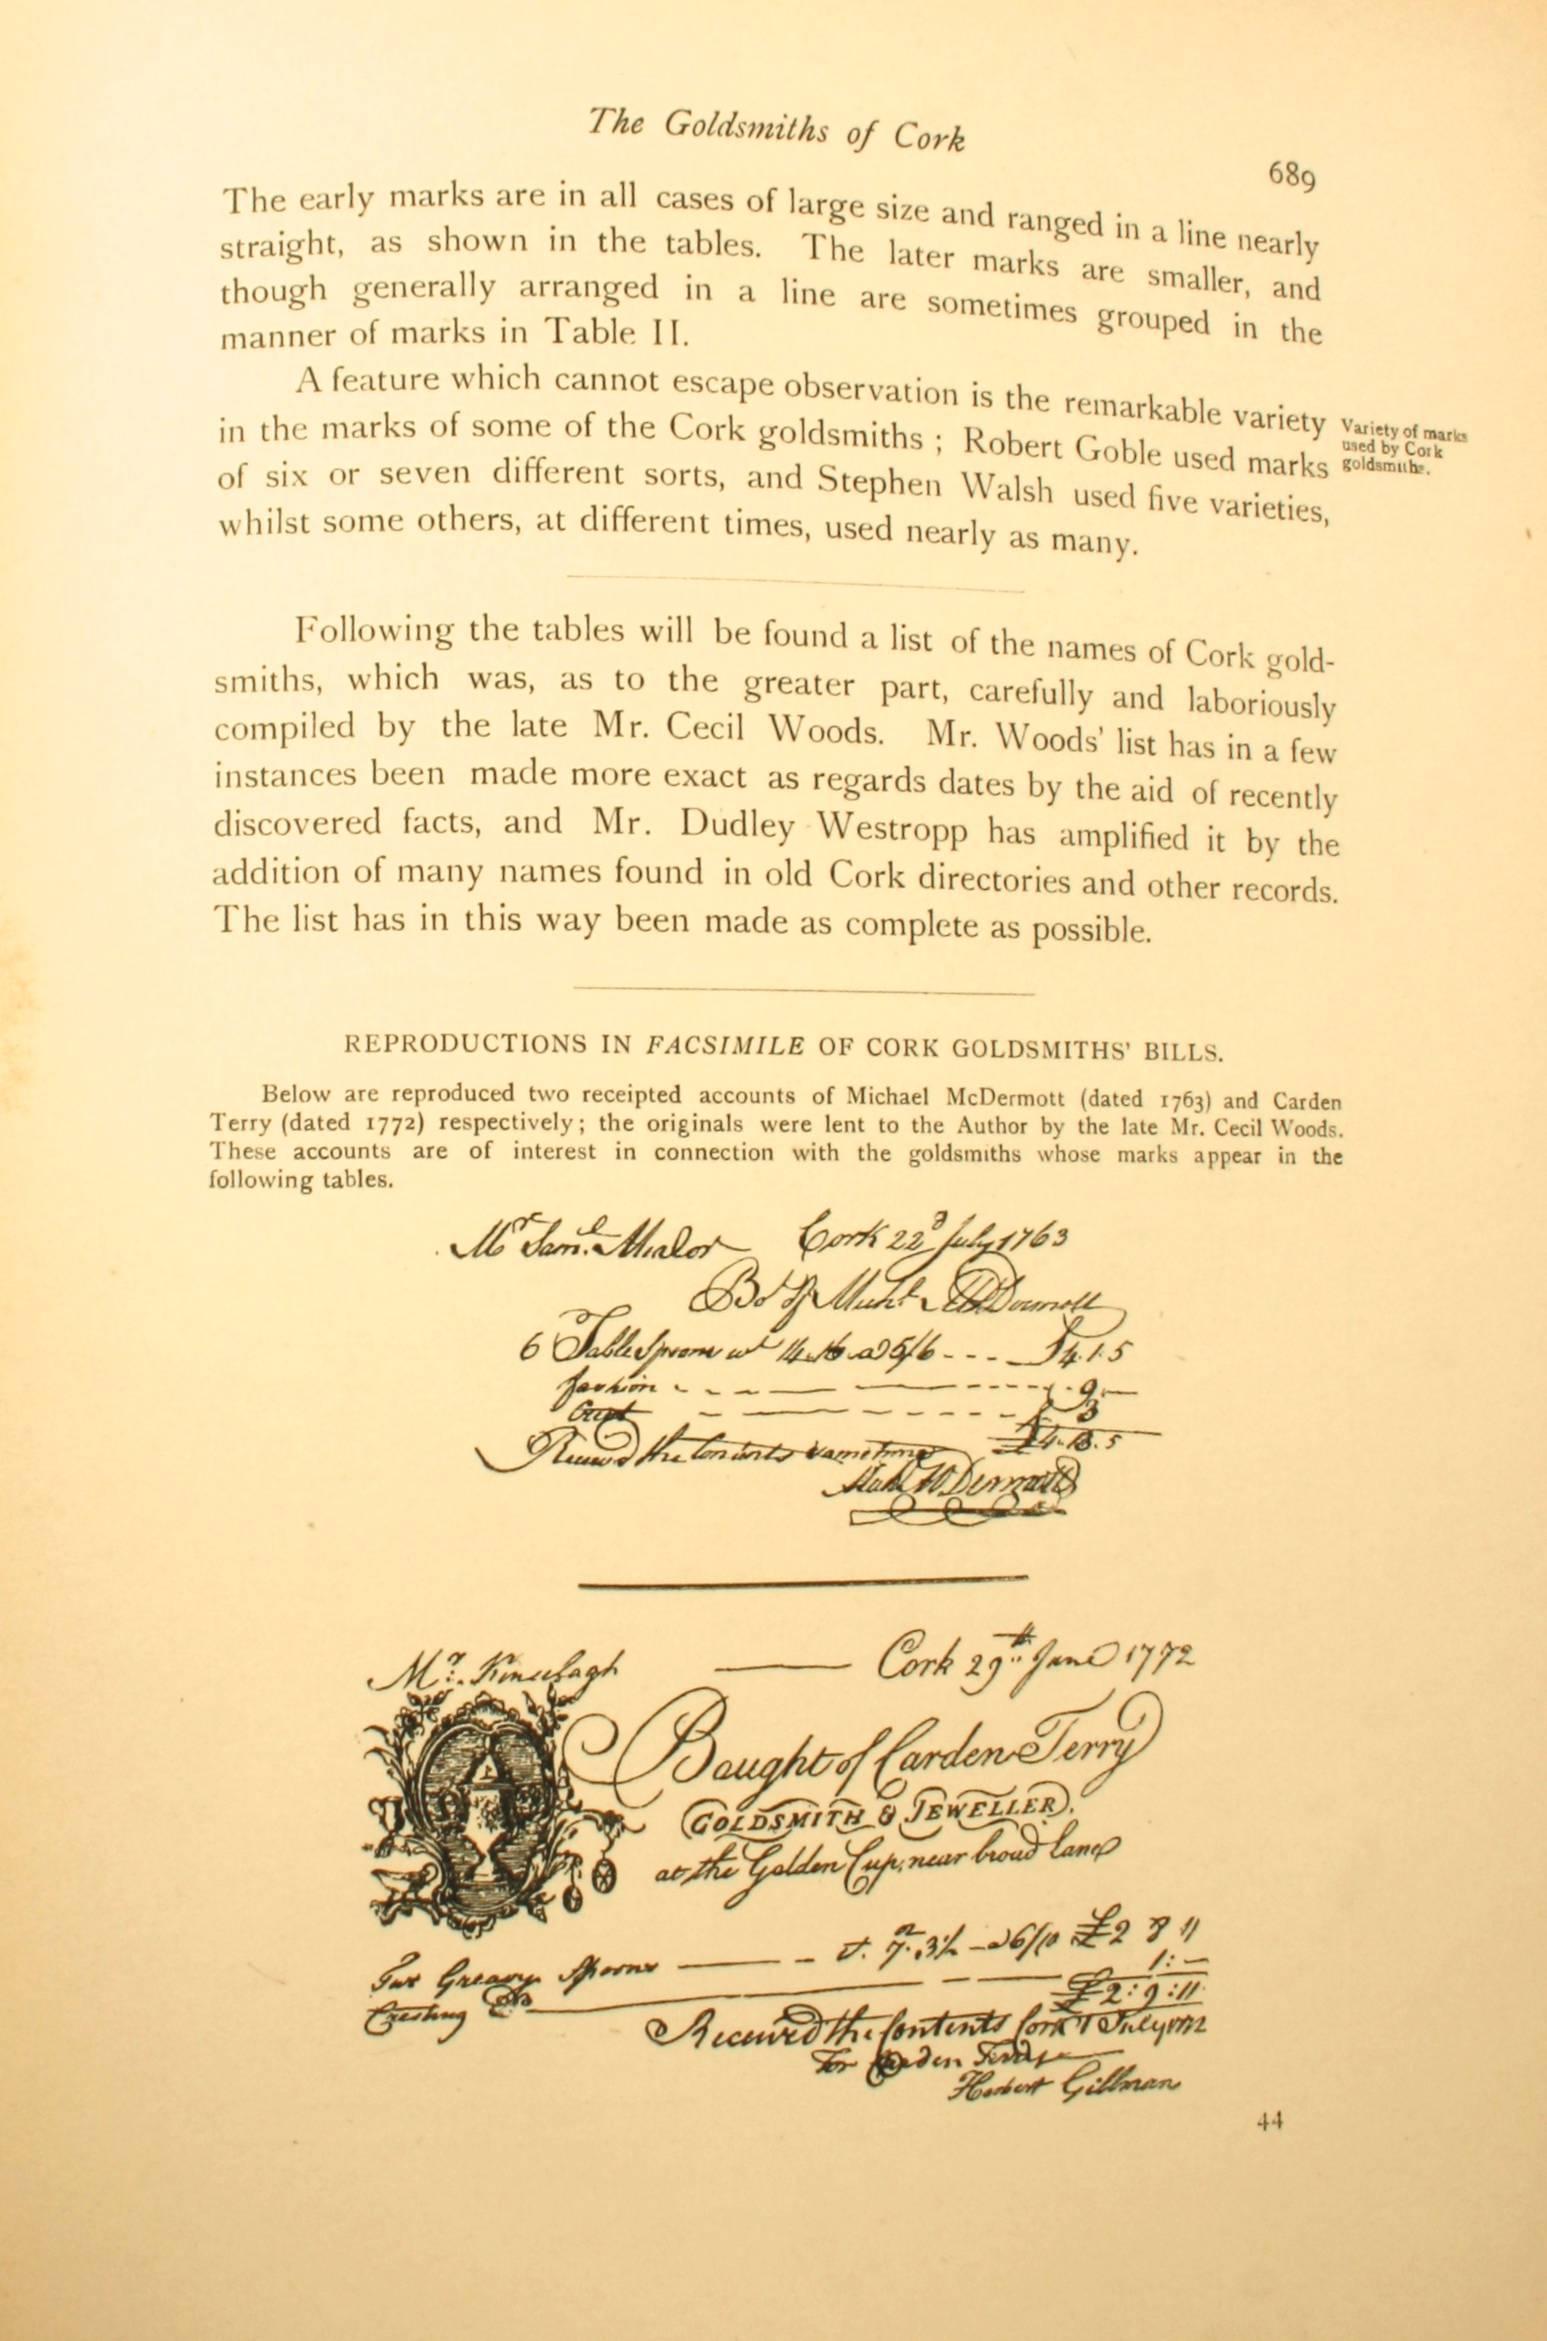 The Goldsmiths of Cork
689
The early marks are in all cases of large size and ranged in a line nearly
straight, as shown in the tables. The later marks are smaller, and
though generally arranged in a line are sometimes grouped in the
manner of marks in Table II.
A feature which cannot escape observation is the remarkable variety
in the marks of some of the Cork goldsmiths ; Robert Goble used marks
of six or seven different sorts, and Stephen Walsh used five varieties,
whilst some others, at different times, used nearly as many.
Variety of marks
used by Cork
goldsmiths.
Following the tables will be found a list of the names of Cork gold-
smiths, which was, as to the greater part, carefully and laboriously
compiled by the late Mr. Cecil Woods. Mr. Woods' list has in a few
instances been made more exact as regards dates by the aid of recently
discovered facts, and Mr. Dudley Westropp has amplified it by the
addition of many names found in old Cork directories and other records.
The list has in this way been made as complete as possible.
REPRODUCTIONS IN FACSIMILE OF CORK GOLDSMITHS' BILLS.
Below are reproduced two receipted accounts of Michael McDermott (dated 1763) and Carden
Terry (dated 1772) respectively ; the originals were lent to the Author by the late Mr. Cecil Woods.
These accounts are of interest in connection with the goldsmiths whose marks appear in the
following tables.
Mr Saml. Cork 22d July 1763
Bot of Michl. McDermott
6 Table Spoons wt a 5/6 £4.1.5
fashion 9
Crest 3
£4.13.5
Received the Contents Same time
Michl McDermott
Mr. Cork 29th June 1772
Bought of Carden Terry
GOLDSMITH & JEWELLER.
at the Golden Cup, near broad lane
Greavy Spoons £2 8 11
Cresting Do 1:-
£2:9:11
Received the Contents Cork 1 July 1772
For Carden Terry
Herbert Gillman
44